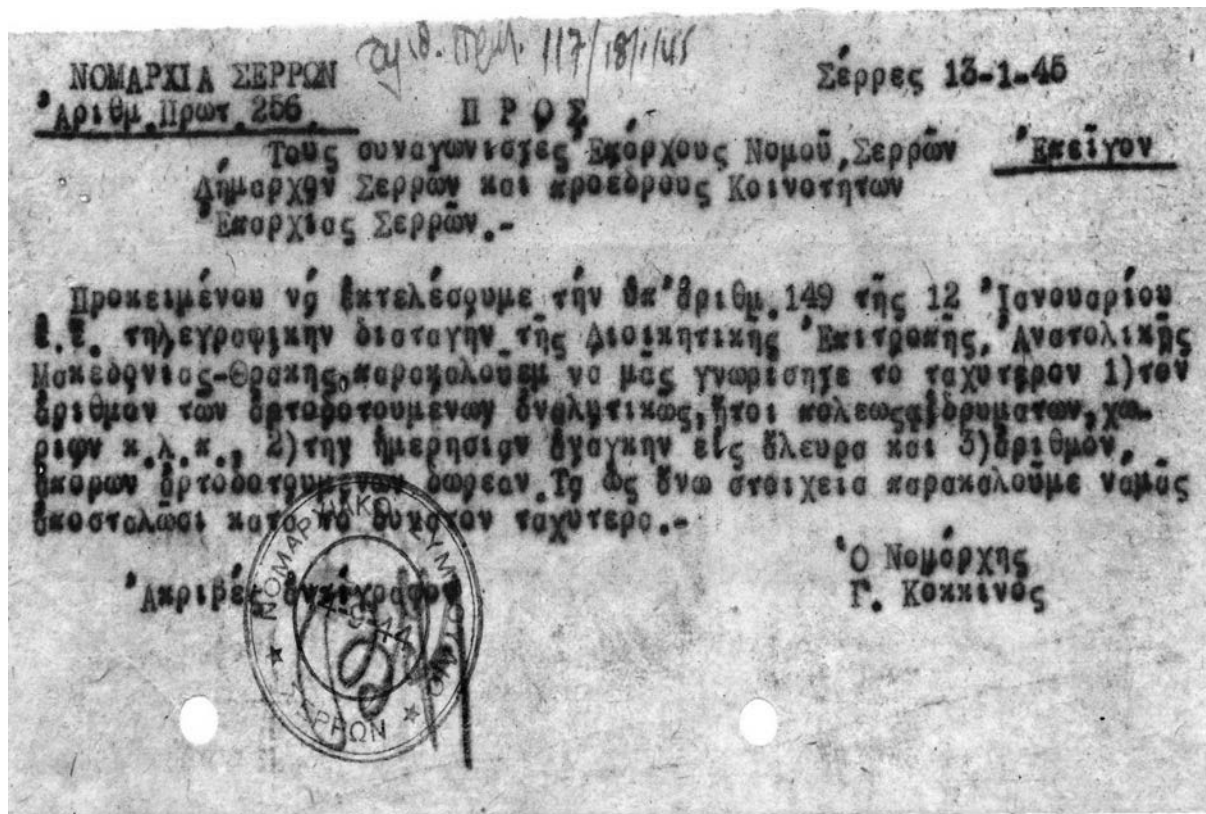 αριθ. πρωτ. 117/18/1/45
ΝΟΜΑΡΧΙΑ ΣΕΡΡΩΝ
Σέρρες 13-1-45
Ἀριθμ.Πρωτ.256.
Π Ρ Ο Σ
Τούς συναγωνιστές Ἐπάρχους Νομοῦ,Σερρῶν
Ἐπεῖγον
Δήμαρχον Σερρῶν και προέδρους Κοινοτήτων
Ἐπαρχίας Σερρῶν.-
Προκειμένου νά ἐκτελέσουμε τήν ὑπ'ἀριθμ.149 τῆς 12 Ἰανουαρίου
ἐ.ἔ. τηλεγραφικήν διαταγήν τῆς Διοικητικῆς Ἐπιτροπῆς Ἀνατολικῆς
Μακεδονίας-Θράκης παρακαλοῦεμ νά μᾶς γνωρίσητε τό ταχύτερον 1)τόν
ἀριθμόν τῶν ἀρτοδοτουμένων ἀναλυτικῶς,ἤτοι πόλεως,ἱδρυμάτων,χω-
ρίων κ.λ.π., 2)την ἡμερησίαν ἀνάγκην εἰς ἄλευρα και 3)ἀριθμόν
ἀπόρων ἀρτοδοτουμένων δωρεάν.Τά ὡς ἄνω στοιχεῖα παρακαλοῦμε νάμᾶς
ἀποσταλῶσι κατά τό δυνατόν ταχύτερα.-
Ὁ Νομάρχης
Ἀκριβές ἀντίγραφον
Γ. Κοκκινός
ΝΟΜΑΡΧΙΑΚΟ ΣΥΜΒΟΥΛΙΟ
-9-44
★ ΣΕΡΡΩΝ ★